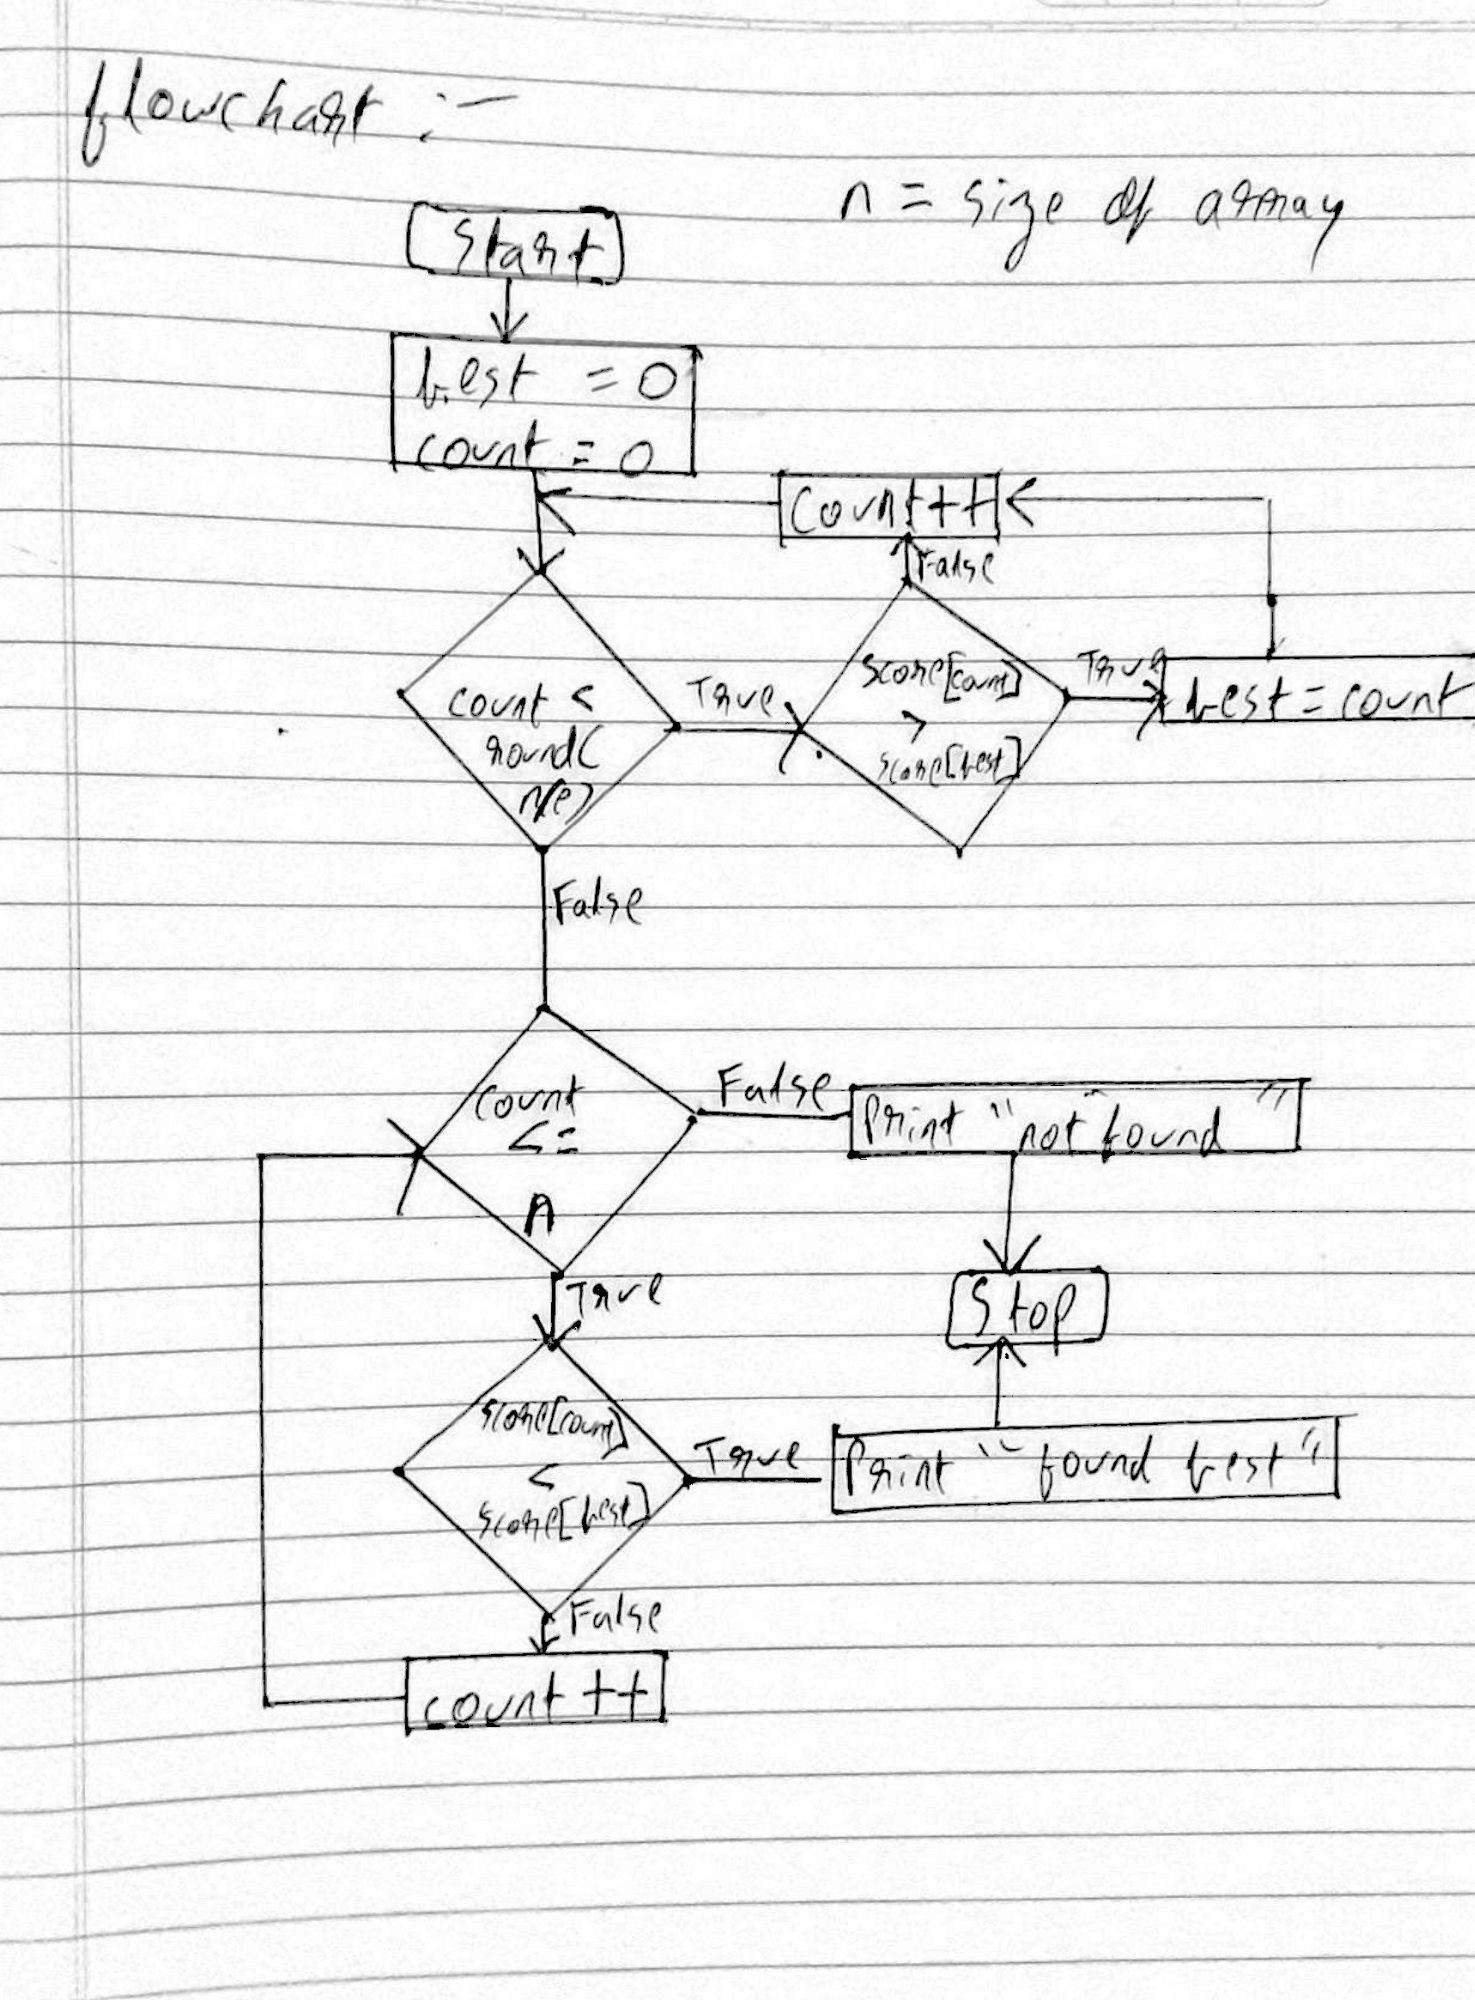 flowchart :-
n = size of array
Start
best = 0
count = 0
count++
False
count <
round(
n/e)
True
score[count]
>
score[best]
True
best = count
False
count
<=
n
False
Print "not found"
True
Stop
score[count]
<
score[best]
True
Print "found best"
False
count ++